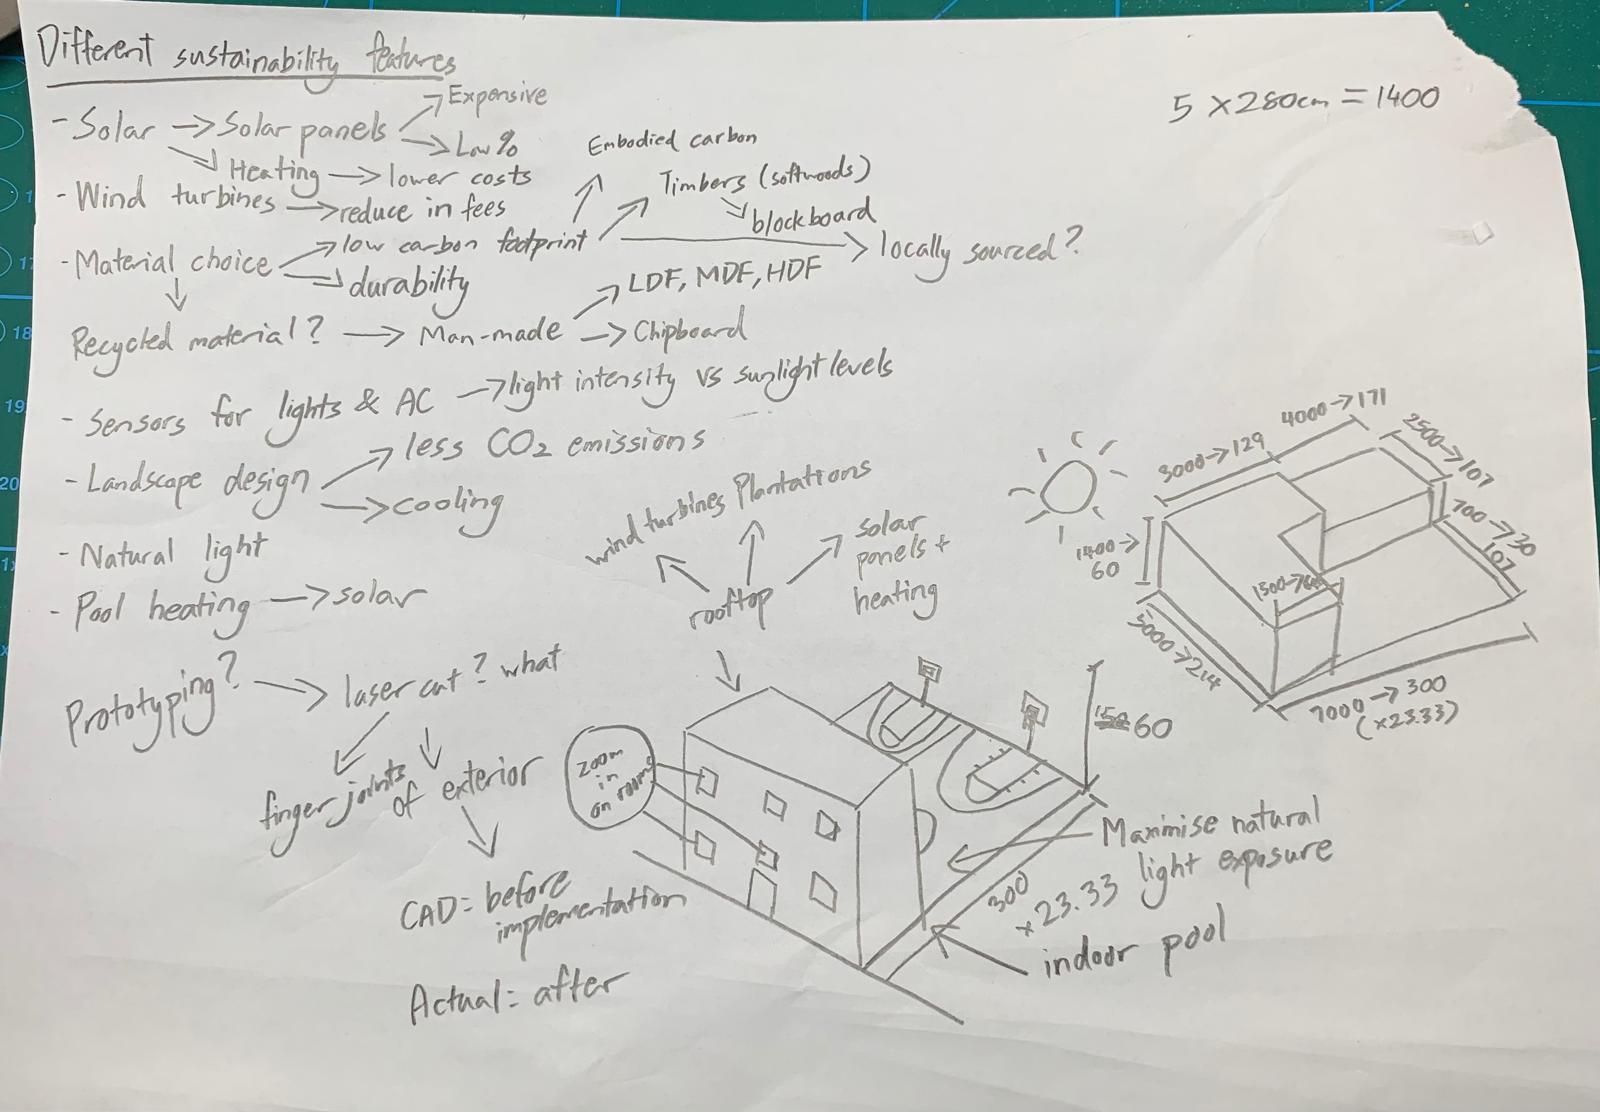 Different sustainability features
5 × 280cm = 1400
- Solar → Solar panels → Expensive
→ Low %
→ Heating → lower costs
- Wind turbines → reduce in fees
- Material choice → low carbon footprint → Embodied carbon
→ Timbers (softwoods)
→ blockboard
→ locally sourced?
→ durability
Recycled material? → Man-made → LDF, MDF, HDF
→ Chipboard
- Sensors for lights & AC → light intensity vs sunlight levels
- Landscape design → less CO2 emissions
→ cooling
- Natural light
- Pool heating → solar
Prototyping? → laser cut? what
finger joints
of exterior
CAD = before
implementation
Actual = after
rooftop
wind turbines
Plantations
solar
panels +
heating
zoom
in
on rooms
60
300
×23.33
Maximise natural
light exposure
indoor pool
3000→129
4000→171
2500→107
700→30
107
1400→
60
1500→
5000→214
7000→300
(×23.33)